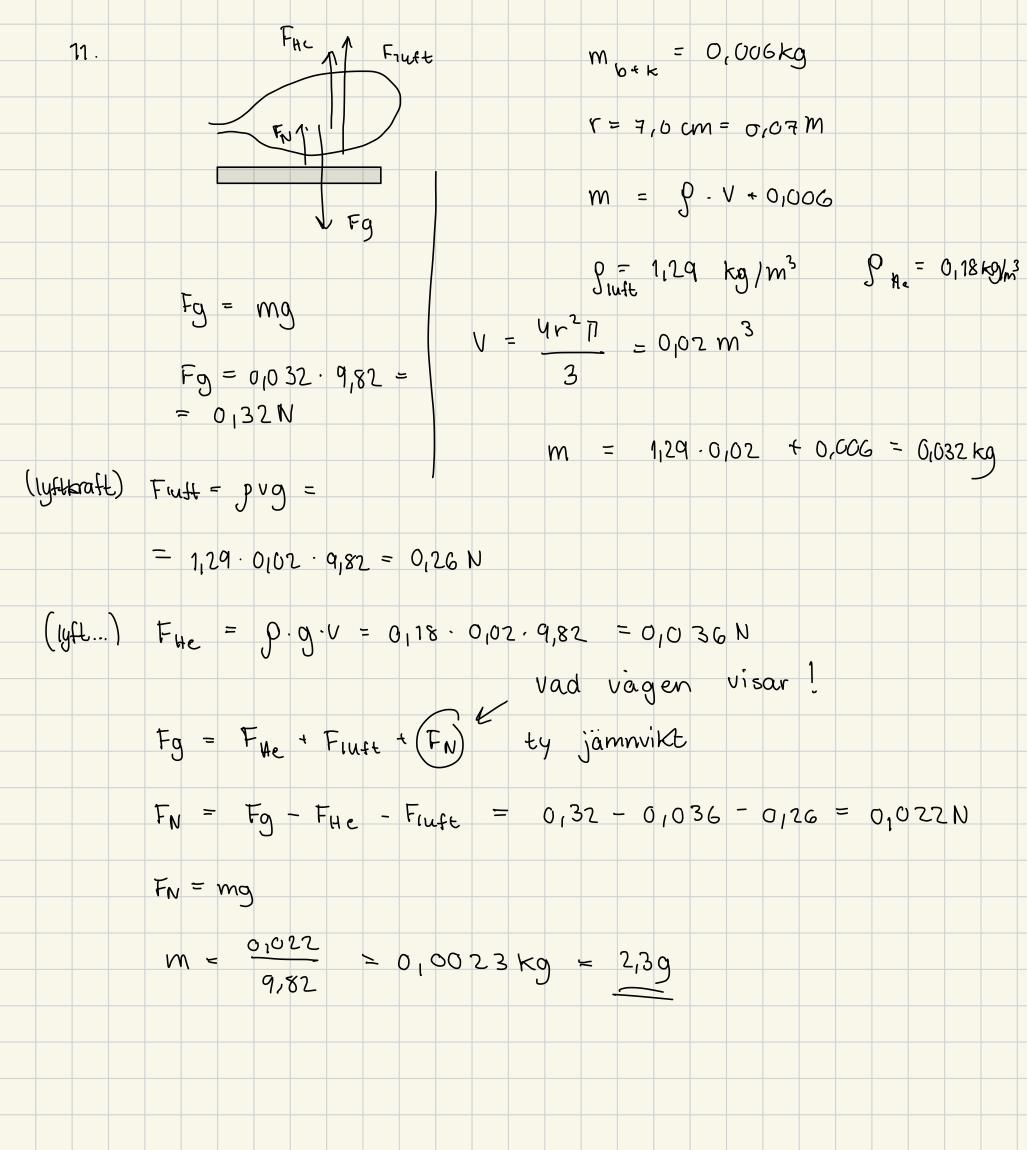 11.
F_He
F_luft
F_N
Fg
m_b+k = 0,006kg
r = 7,0 cm = 0,07m
m = ρ · V + 0,006
ρ_luft = 1,29 kg/m³ ρ_He = 0,18kg/m³
V = 4r²π / 3 = 0,02 m³
m = 1,29 · 0,02 + 0,006 = 0,032 kg
Fg = mg
Fg = 0,032 · 9,82 =
= 0,32N
(lyftkraft) F_luft = ρvg =
= 1,29 · 0,02 · 9,82 = 0,26 N
(lyft...) F_He = ρ·g·v = 0,18 · 0,02 · 9,82 = 0,036 N
vad vågen visar !
Fg = F_He + F_luft + F_N ty jämnvikt
F_N = Fg - F_He - F_luft = 0,32 - 0,036 - 0,26 = 0,022 N
F_N = mg
m = 0,022 / 9,82 = 0,0023 kg = 2,3g